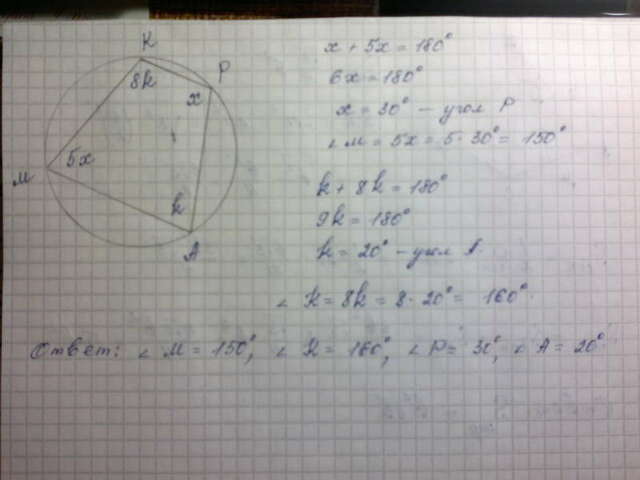 K
P
8k
x
5x
M
k
A
x + 5x = 180°
6x = 180°
x = 30° – угол P
∠ M = 5x = 5 · 30° = 150°
k + 8k = 180°
9k = 180°
k = 20° – угол A
∠ K = 8k = 8 · 20° = 160°
Ответ: ∠ M = 150°, ∠ K = 160°, ∠ P = 30°, ∠ A = 20°